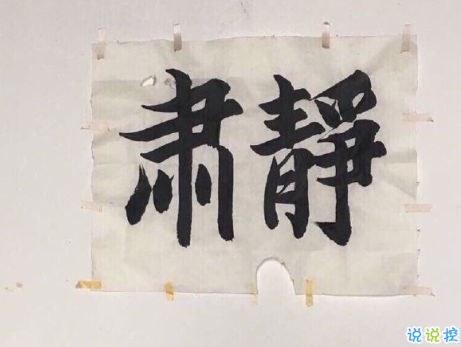 肃靜
说说控